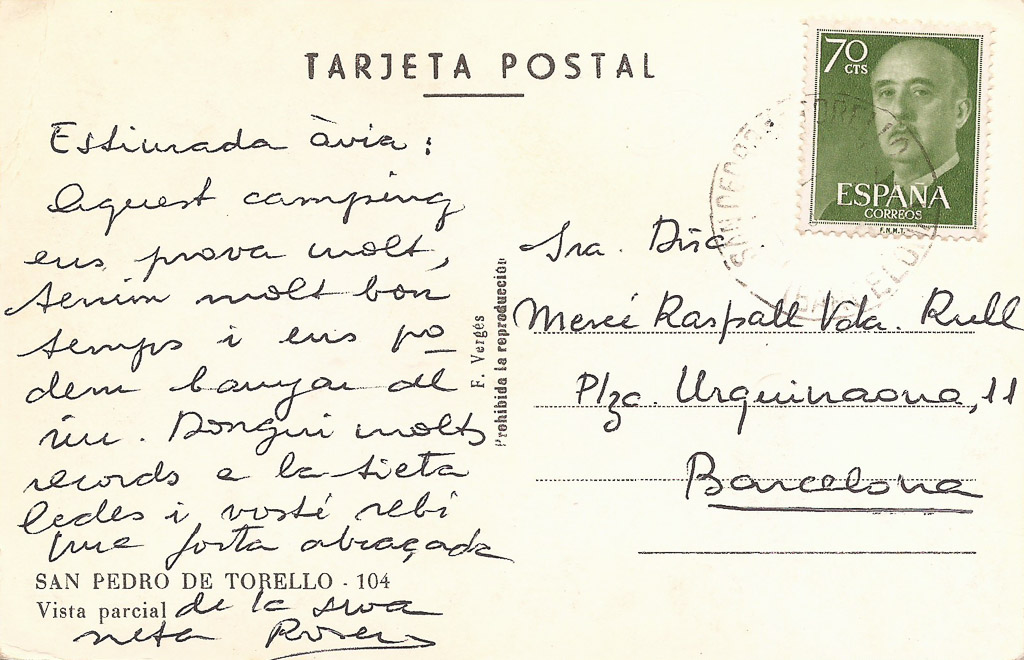 TARJETA POSTAL
70
CTS
ESPAÑA
CORREOS
F.N.M.T.
Estimada àvia:
Aquest camping
ens prova molt,
tenim molt bon
temps i ens po-
dem banyar al
riu. Dongui molts
records a la tieta
Cedes i vosté rebi
una forta abraçada
de la seva
neta Roser
SAN PEDRO DE TORELLO - 104
Vista parcial
F. Vergés
Prohibida la reproducción
Sra. Dña.
Mercé Raspall Vda. Rull
Plza. Urquinaona, 11
Barcelona